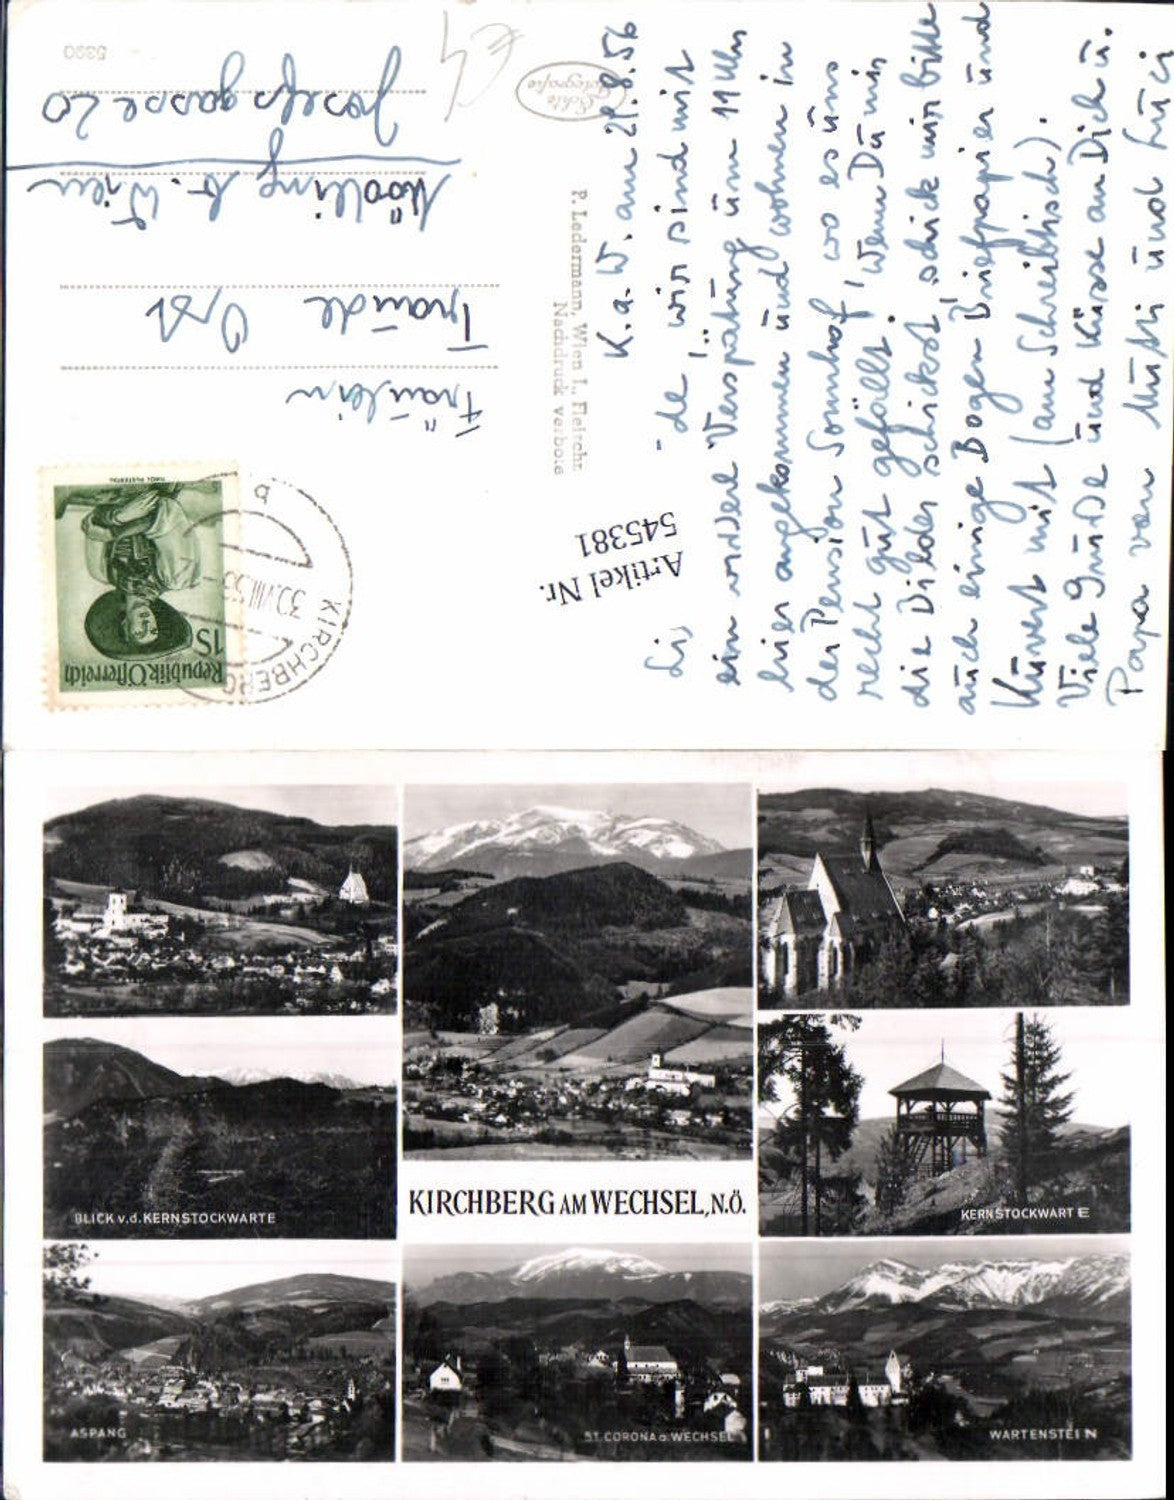 K.a.W. am 29.8.56
wir sind mit
Verspätung um 11 Uhr
hier angekommen und wohnen in
der Pension Sonnhof, wo es uns
recht gut gefällt. Wenn Du mir
die Bilder schickst, schick mir bitte
auch einige Bogen Briefpapier und
Kuvert mit (am Schreibtisch).
Viele Grüße und Küsse an Dich u.
Papa von Mutti und Luci
Echte
Fotografie
P. Ledermann, Wien I., Fleischr
Nachdruck verbote
Artikel Nr.
545381
Republik Österreich
1S
KIRCHBERG
30.VIII.56
a
Fräulein
Traude
Mödling b. Wien
Josefsgasse 20
5390
€4
BLICK v.d. KERNSTOCKWARTE
KIRCHBERG AM WECHSEL, N.Ö.
KERNSTOCKWARTE
ASPANG
ST. CORONA a. WECHSEL
WARTENSTEIN